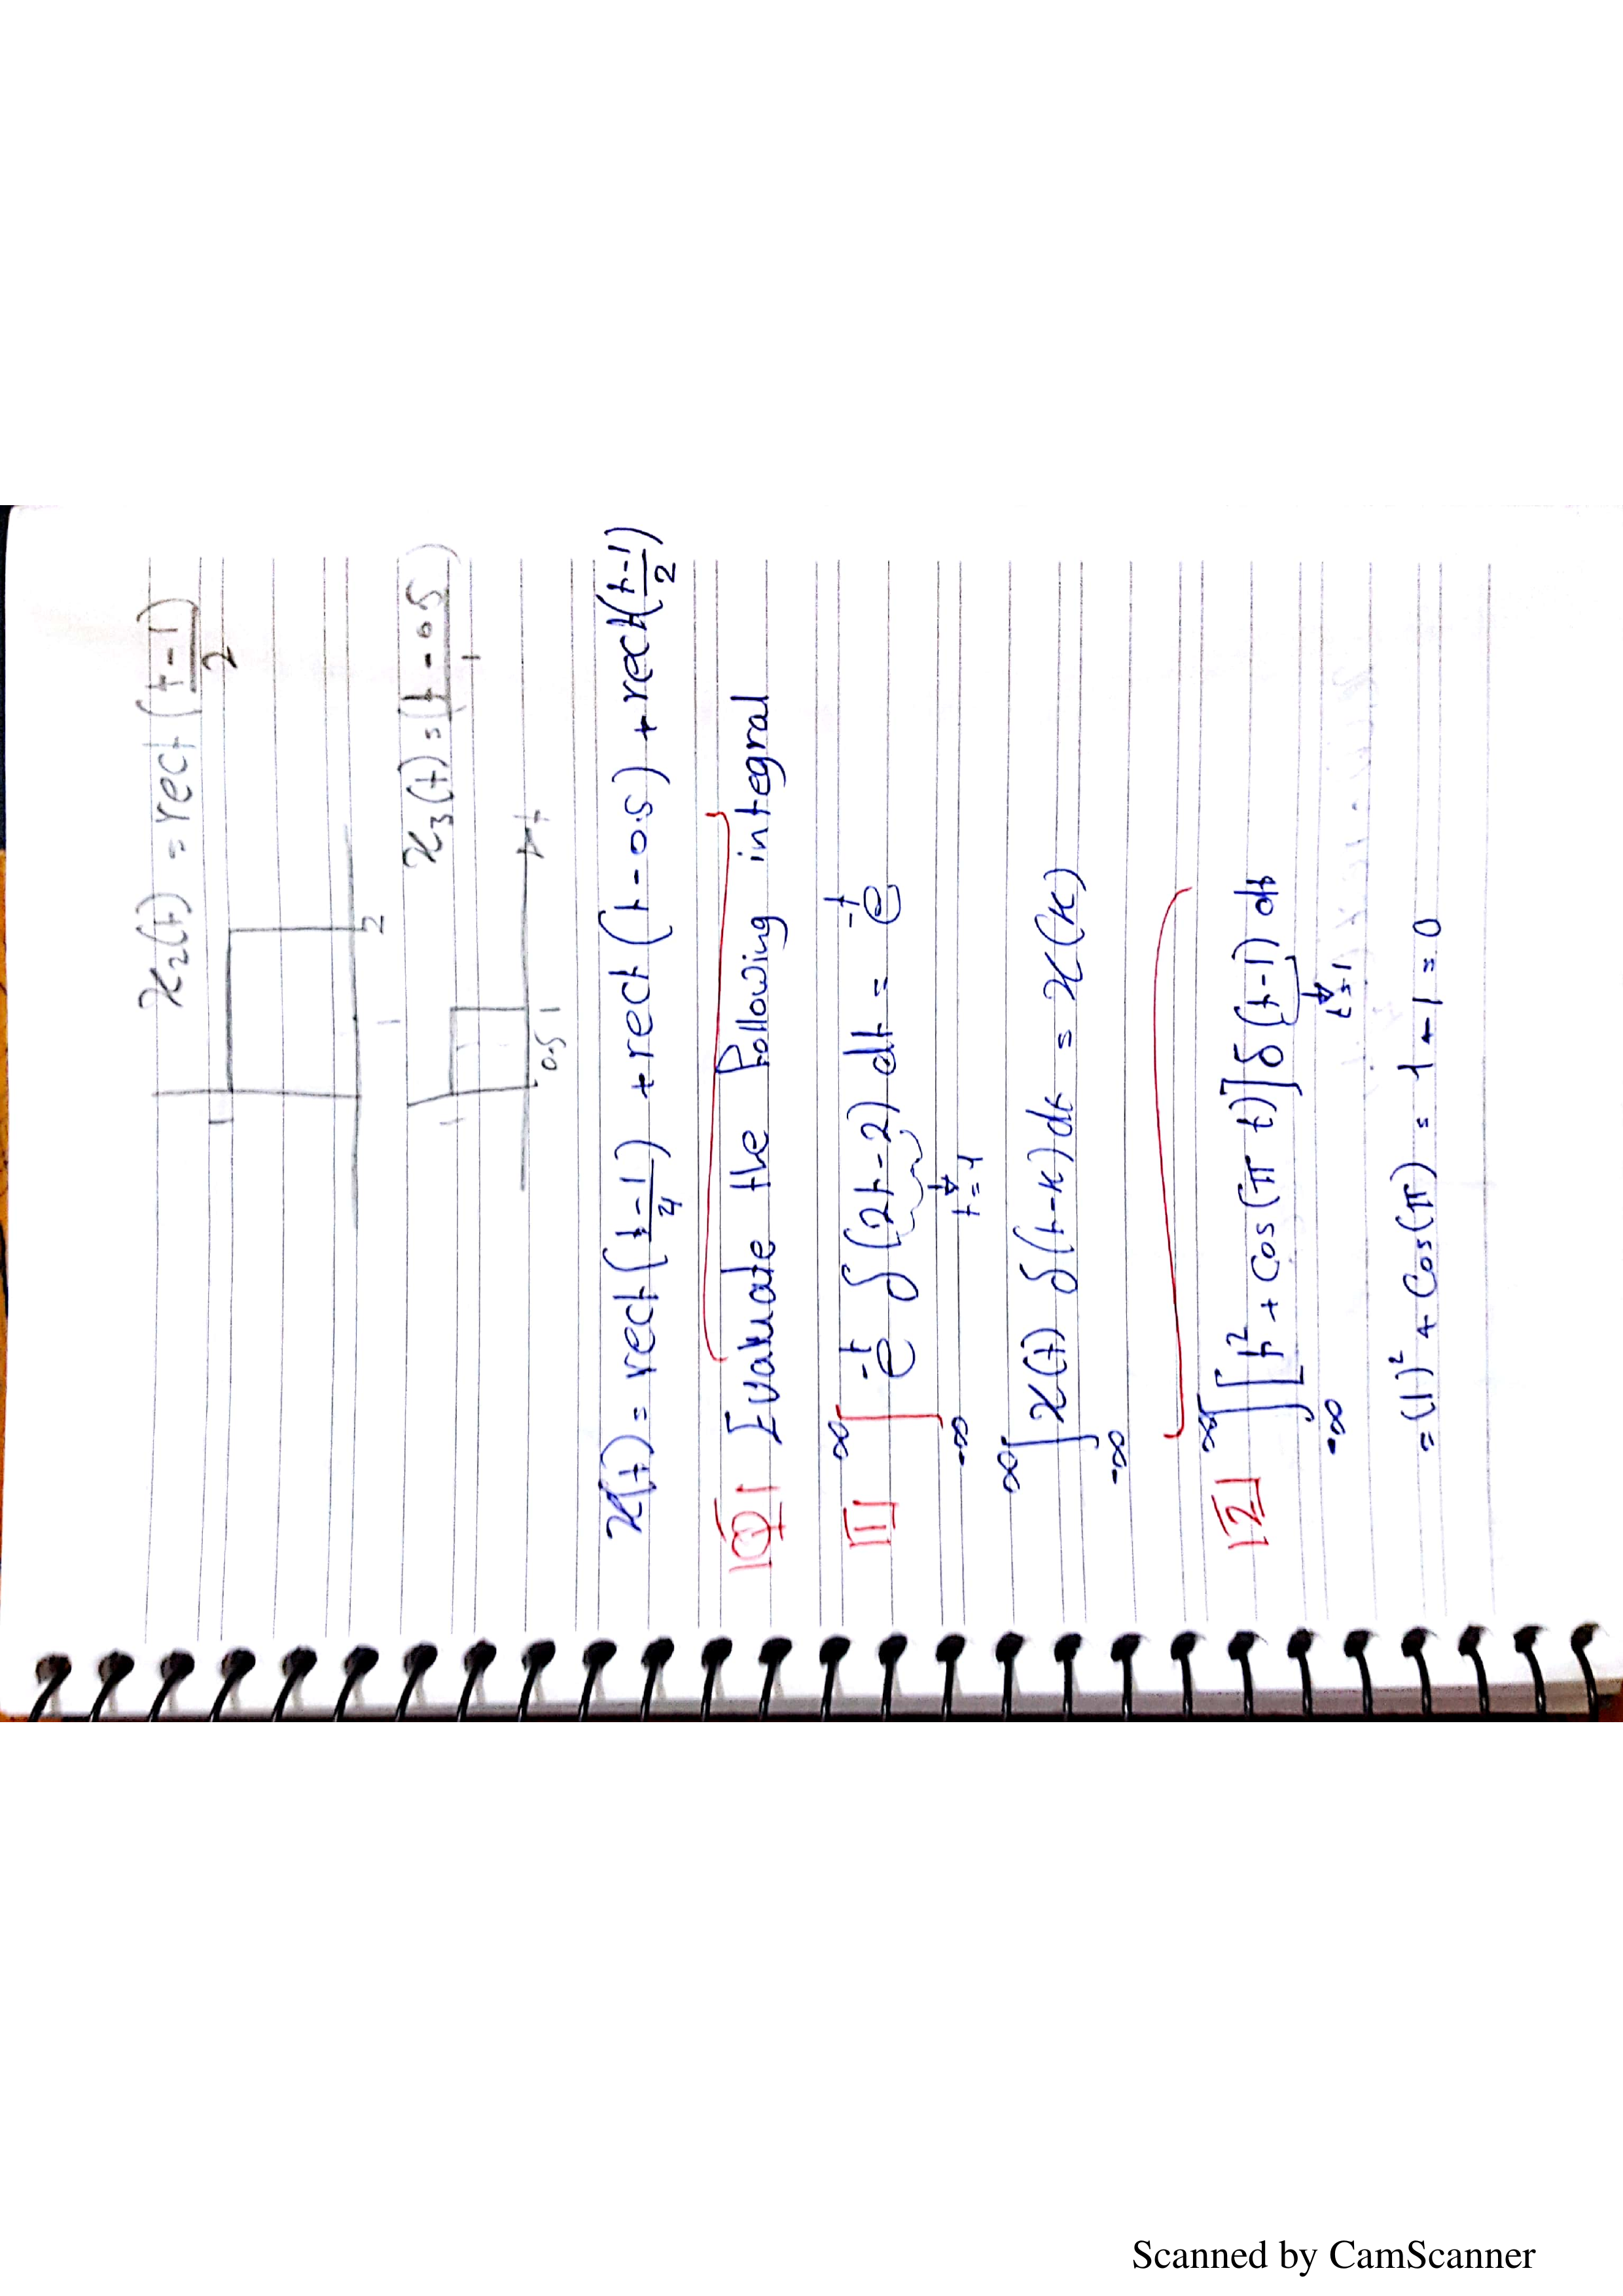 x₂(t) = rect(t-1/2)
1
1 2
x₃(t) = (t-0.5/1)
1
0.5 1 t
x(t) = rect(t-1/4) + rect(t-0.5) + rect(t-1/2)
Q Evaluate the Following integral
1 ∫_{-∞}^{∞} e^{-t} δ(2t-2) dt = e^{-t}
t=1
∫_{-∞}^{∞} x(t) δ(t-k) dt = x(k)
2 ∫_{-∞}^{∞} [t² + Cos(π t)] δ(t-1) dt
t=1
= (1)² + Cos(π) = 1 - 1 = 0
Scanned by CamScanner